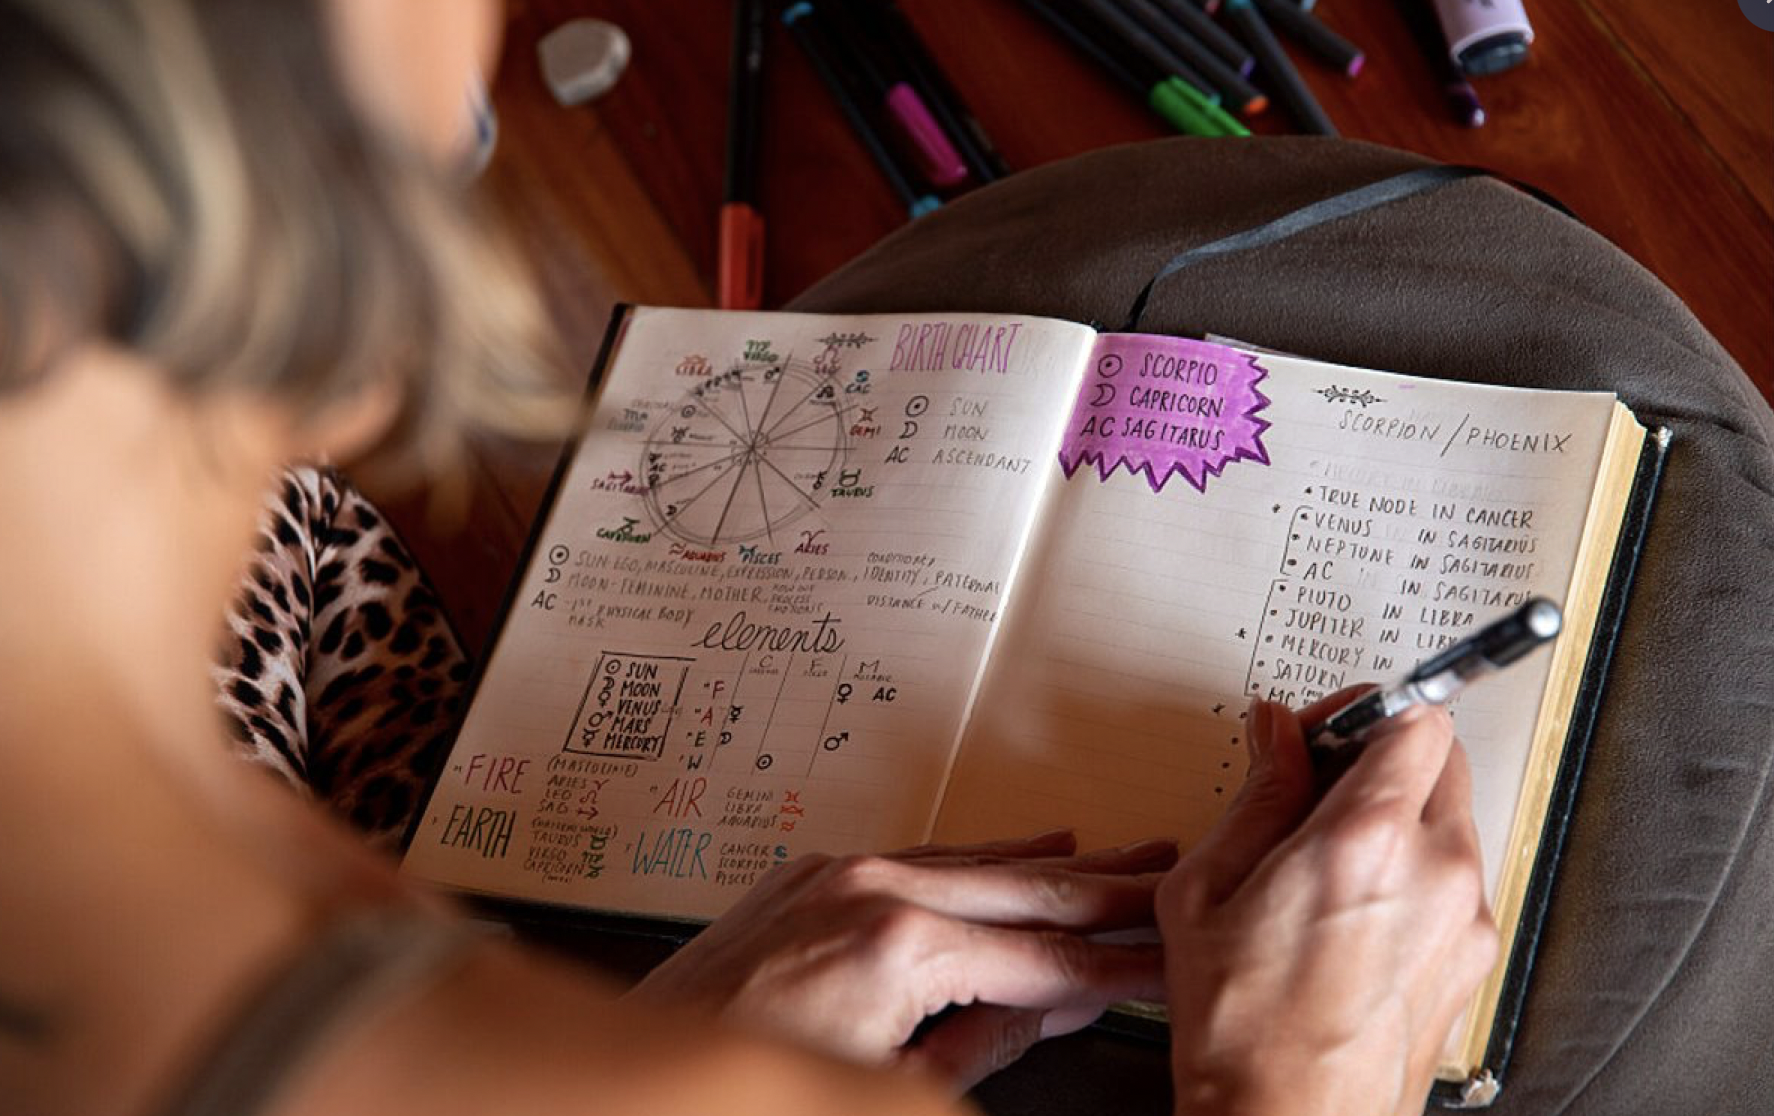 BIRTH CHART
VIRGO
LIBRA
LEO
CAC
GEMI
TAURUS
ARIES
PISCES
AQUARIUS
CAPRICORN
SAGITARIUS
☉ SUN
☽ MOON
AC ASCENDANT
☉ SUN-EGO, MASCULINE, EXPRESSION, PERSON., IDENTITY, PATERNAL
☽ MOON-FEMININE, MOTHER, DISTANCE w/ FATHER
AC -1ST PHYSICAL BODY
MASK
elements
C F M
☉ SUN
☽ MOON
♀ VENUS
♂ MARS
☿ MERCURY
F ♀ AC
A ☿
E ☽ ♂
W ☉
FIRE
ARIES ♈
LEO ♌
SAG ♐
AIR
GEMINI ♊
LIBRA
AQUARIUS ♒
EARTH
TAURUS ♉
VIRGO
CAPRICORN
WATER
CANCER ♋
SCORPIO
PISCES
☉ SCORPIO
☽ CAPRICORN
AC SAGITARUS
SCORPION / PHOENIX
TRUE NODE IN CANCER
VENUS IN SAGITARIUS
NEPTUNE IN SAGITARIUS
AC IN SAGITARIUS
PLUTO IN LIBRA
JUPITER IN LIBRA
MERCURY IN
SATURN
MC